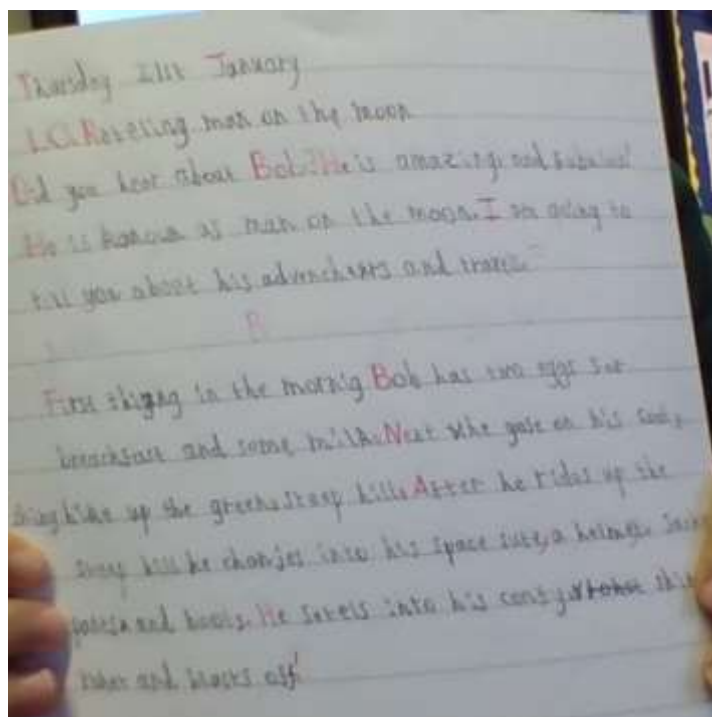 Thursday 21st January
L.O. Reteling man on the moon
Did you hear about Bob? He is amazing and fabulos!
He is known as man on the moon. I am going to
tell you about his advenchers and travels.
R
First thing in the mornig Bob has two eggs for
breackfast and some milk. Next he gose on his
bike up the green, steep hills. After he rides up the
steep hill he changes into his space sute, a helmet,
and boots. He into his
and off!